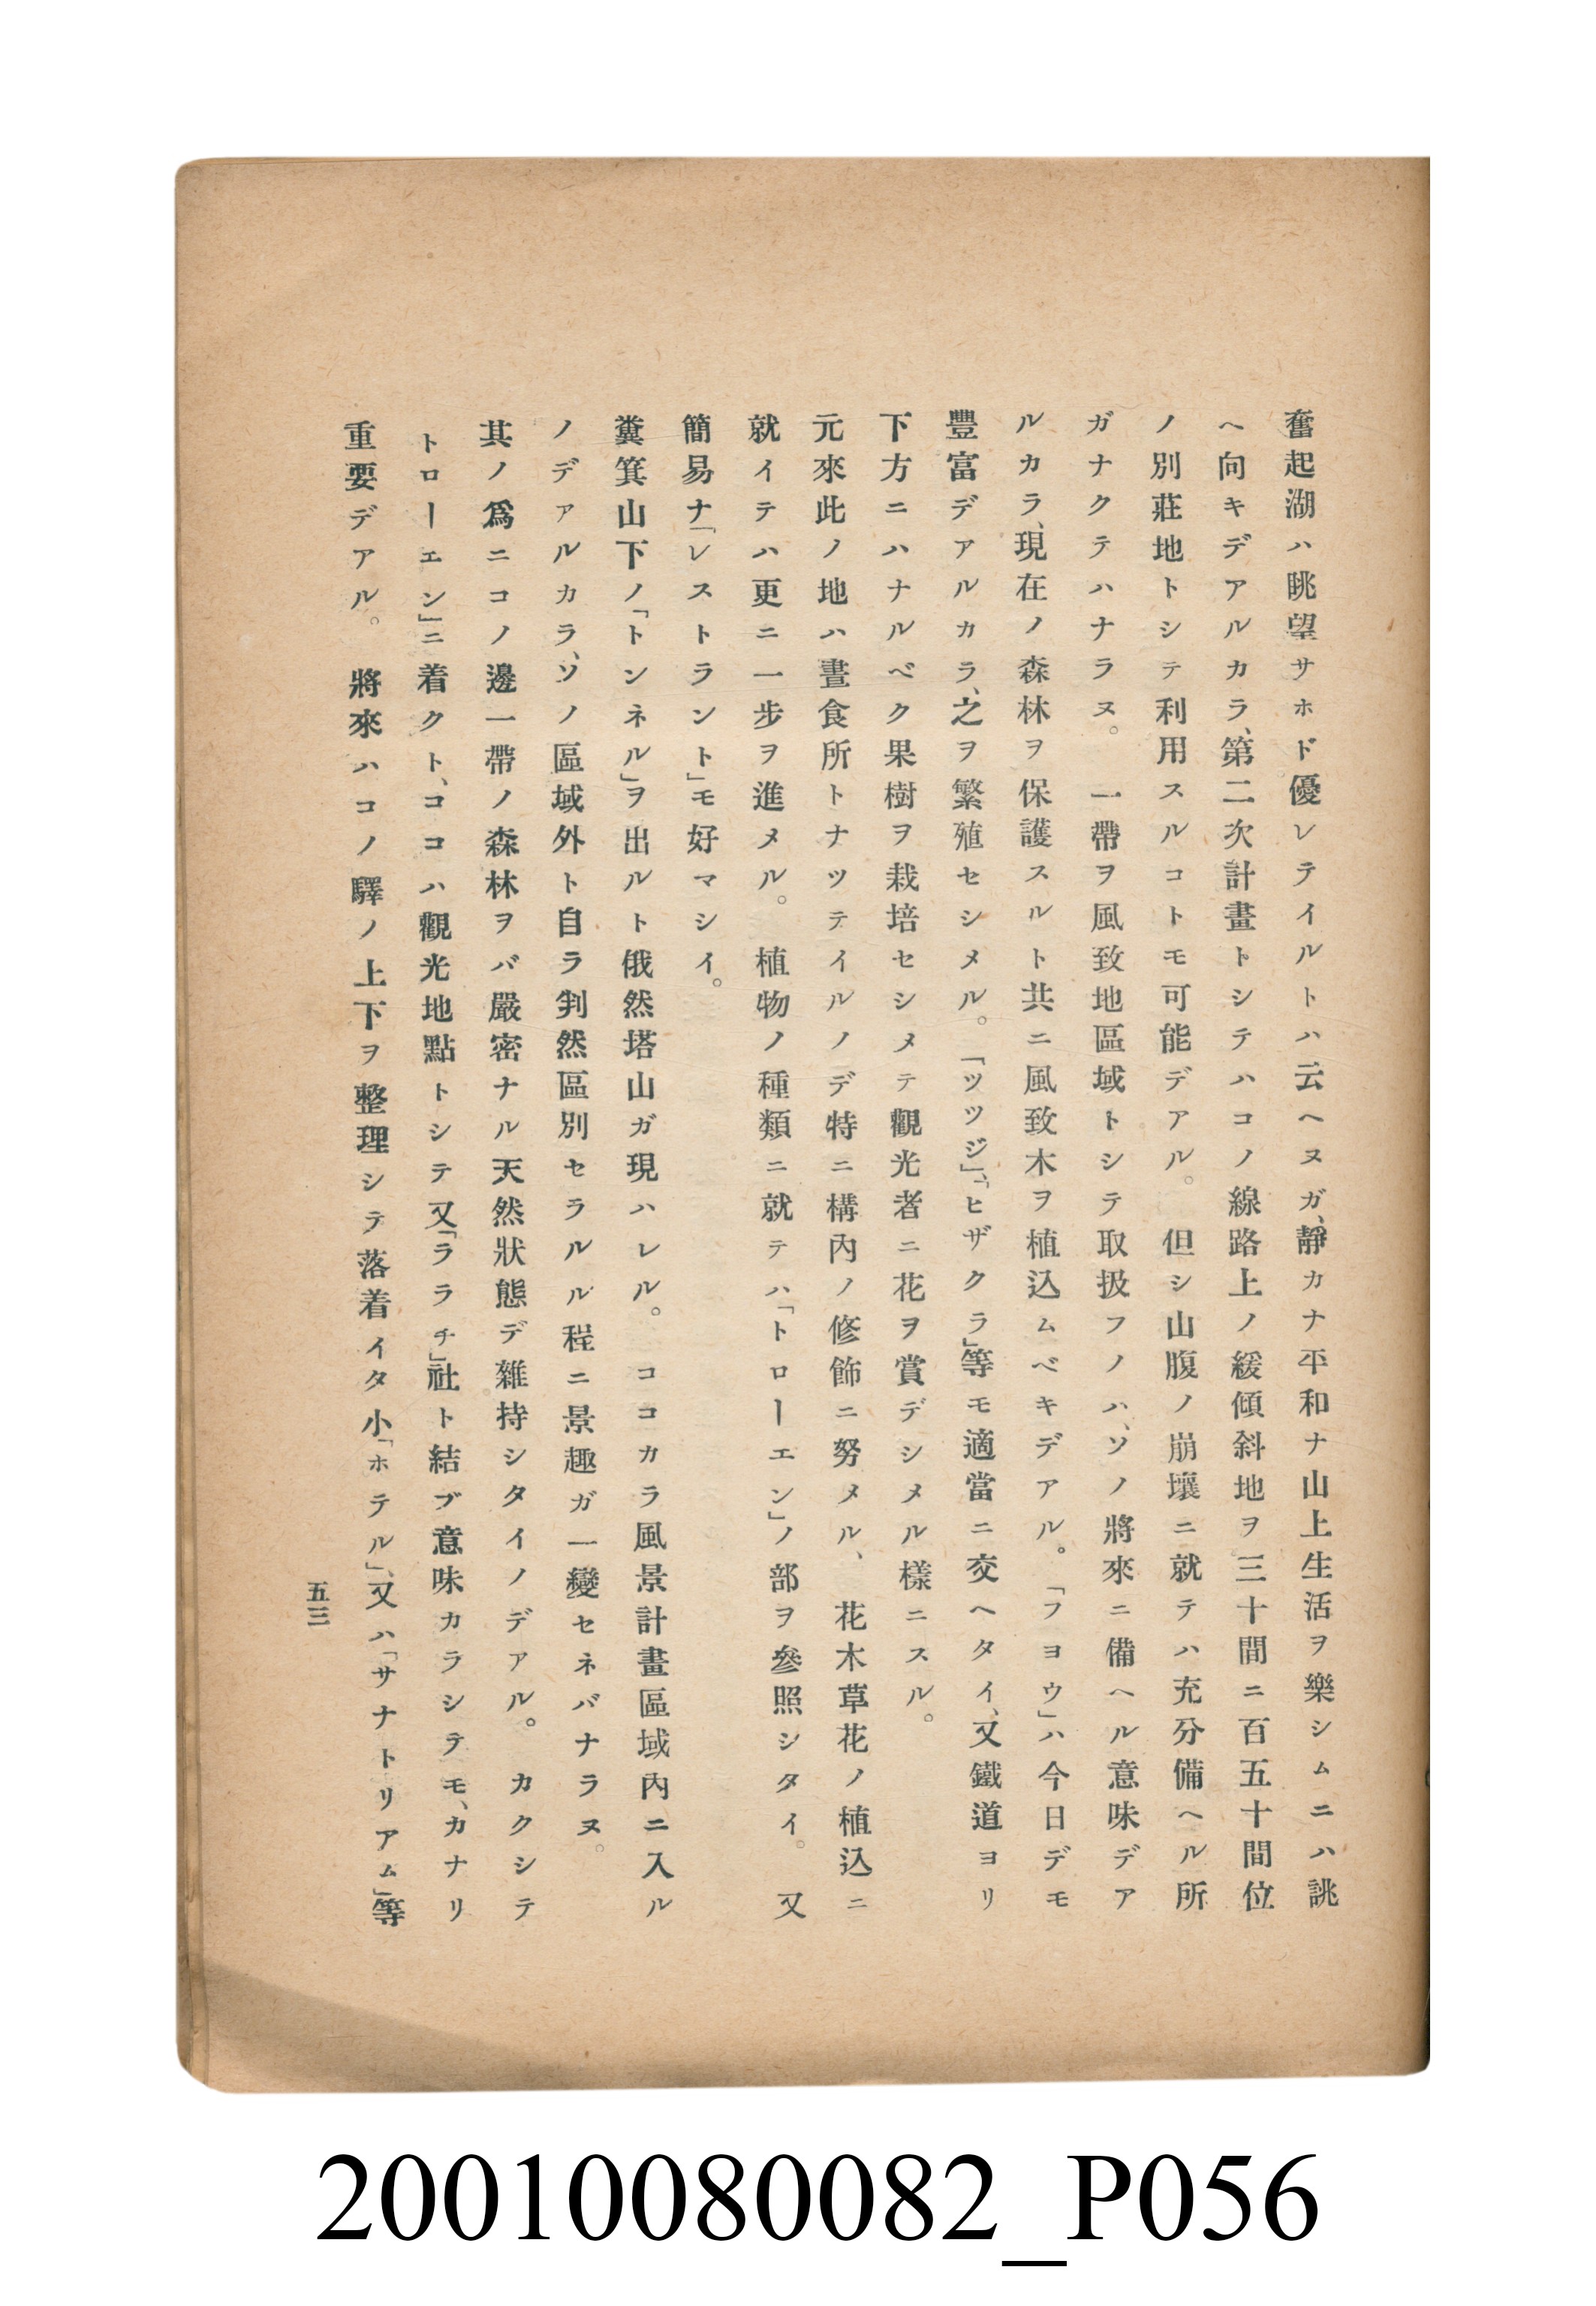 奮起湖ハ眺望サホド優レテイルトハ云ヘヌガ、靜カナ平和ナ山上生活ヲ樂シムニハ誂
ヘ向キデアルカラ、第二次計畫トシテハコノ線路上ノ緩傾斜地ヲ三十間ニ百五十間位
ノ別莊地トシテ利用スルコトモ可能デアル。但シ山腹ノ崩壞ニ就テハ充分備ヘル所
ガナクテハナラヌ。一帶ヲ風致地區域トシテ取扱フノハ、ソノ將來ニ備ヘル意味デア
ルカラ、現在ノ森林ヲ保護スルト共ニ風致木ヲ植込ムベキデアル。「フヨウ」ハ今日デモ
豐富デアルカラ、之ヲ繁殖セシメル。「ツツジ」、「ヒザクラ」等モ適當ニ交ヘタイ、又鐵道ヨリ
下方ニハナルベク果樹ヲ栽培セシメテ觀光者ニ花ヲ賞デシメル樣ニスル。
元來此ノ地ハ晝食所トナツテイルノデ特ニ構內ノ修飾ニ努メル、花木草花ノ植込ニ
就イテハ更ニ一步ヲ進メル。植物ノ種類ニ就テハ「トローエン」ノ部ヲ參照シタイ。又
簡易ナ「レストラント」モ好マシイ。
糞箕山下ノ「トンネル」ヲ出ルト俄然塔山ガ現ハレル。ココカラ風景計畫區域內ニ入ル
ノデアルカラ、ソノ區域外ト自ラ判然區別セラルル程ニ景趣ガ一變セネバナラヌ。
其ノ爲ニコノ邊一帶ノ森林ヲバ嚴密ナル天然狀態デ雜持シタイノデアル。カクシテ
トローエン」ニ着クト、ココハ觀光地點トシテ又「ララチ」社ト結ブ意味カラシテモ、カナリ
重要デアル。將來ハコノ驛ノ上下ヲ整理シテ落着イタ小「ホテル」、又ハ「サナトリアム」等
五三
20010080082_P056